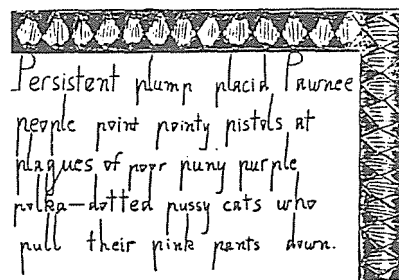 Persistent plump placid Pawnee
people point pointy pistols at
plaques of poor puny purple
polka-dotted pussy cats who
pull their pink pants down.